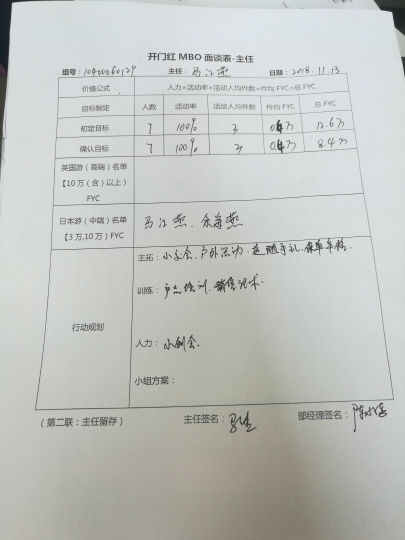 开门红 MBO 面谈表-主任
组号：10400060129 主任：马江燕 日期：2018.11.13
价值公式 人力×活动率×活动人均件数×件均 FYC=总 FYC
目标制定 人数 活动率 活动人均件数 件均 FYC 总 FYC
初定目标 7 100% 3 0.6万 12.6万
确认目标 7 100% 3 0.4万 8.4万
英国游（高端）名单
【10 万（含）以上）
FYC
日本游（中端）名单 马江燕、余海燕
【3 万,10 万）FYC
行动规划
主拓：小交会、户外活动、送随手礼、保单年检、
训练：产品培训、销售话术
人力：小创会
小组方案：
（第二联：主任留存） 主任签名： 部经理签名：